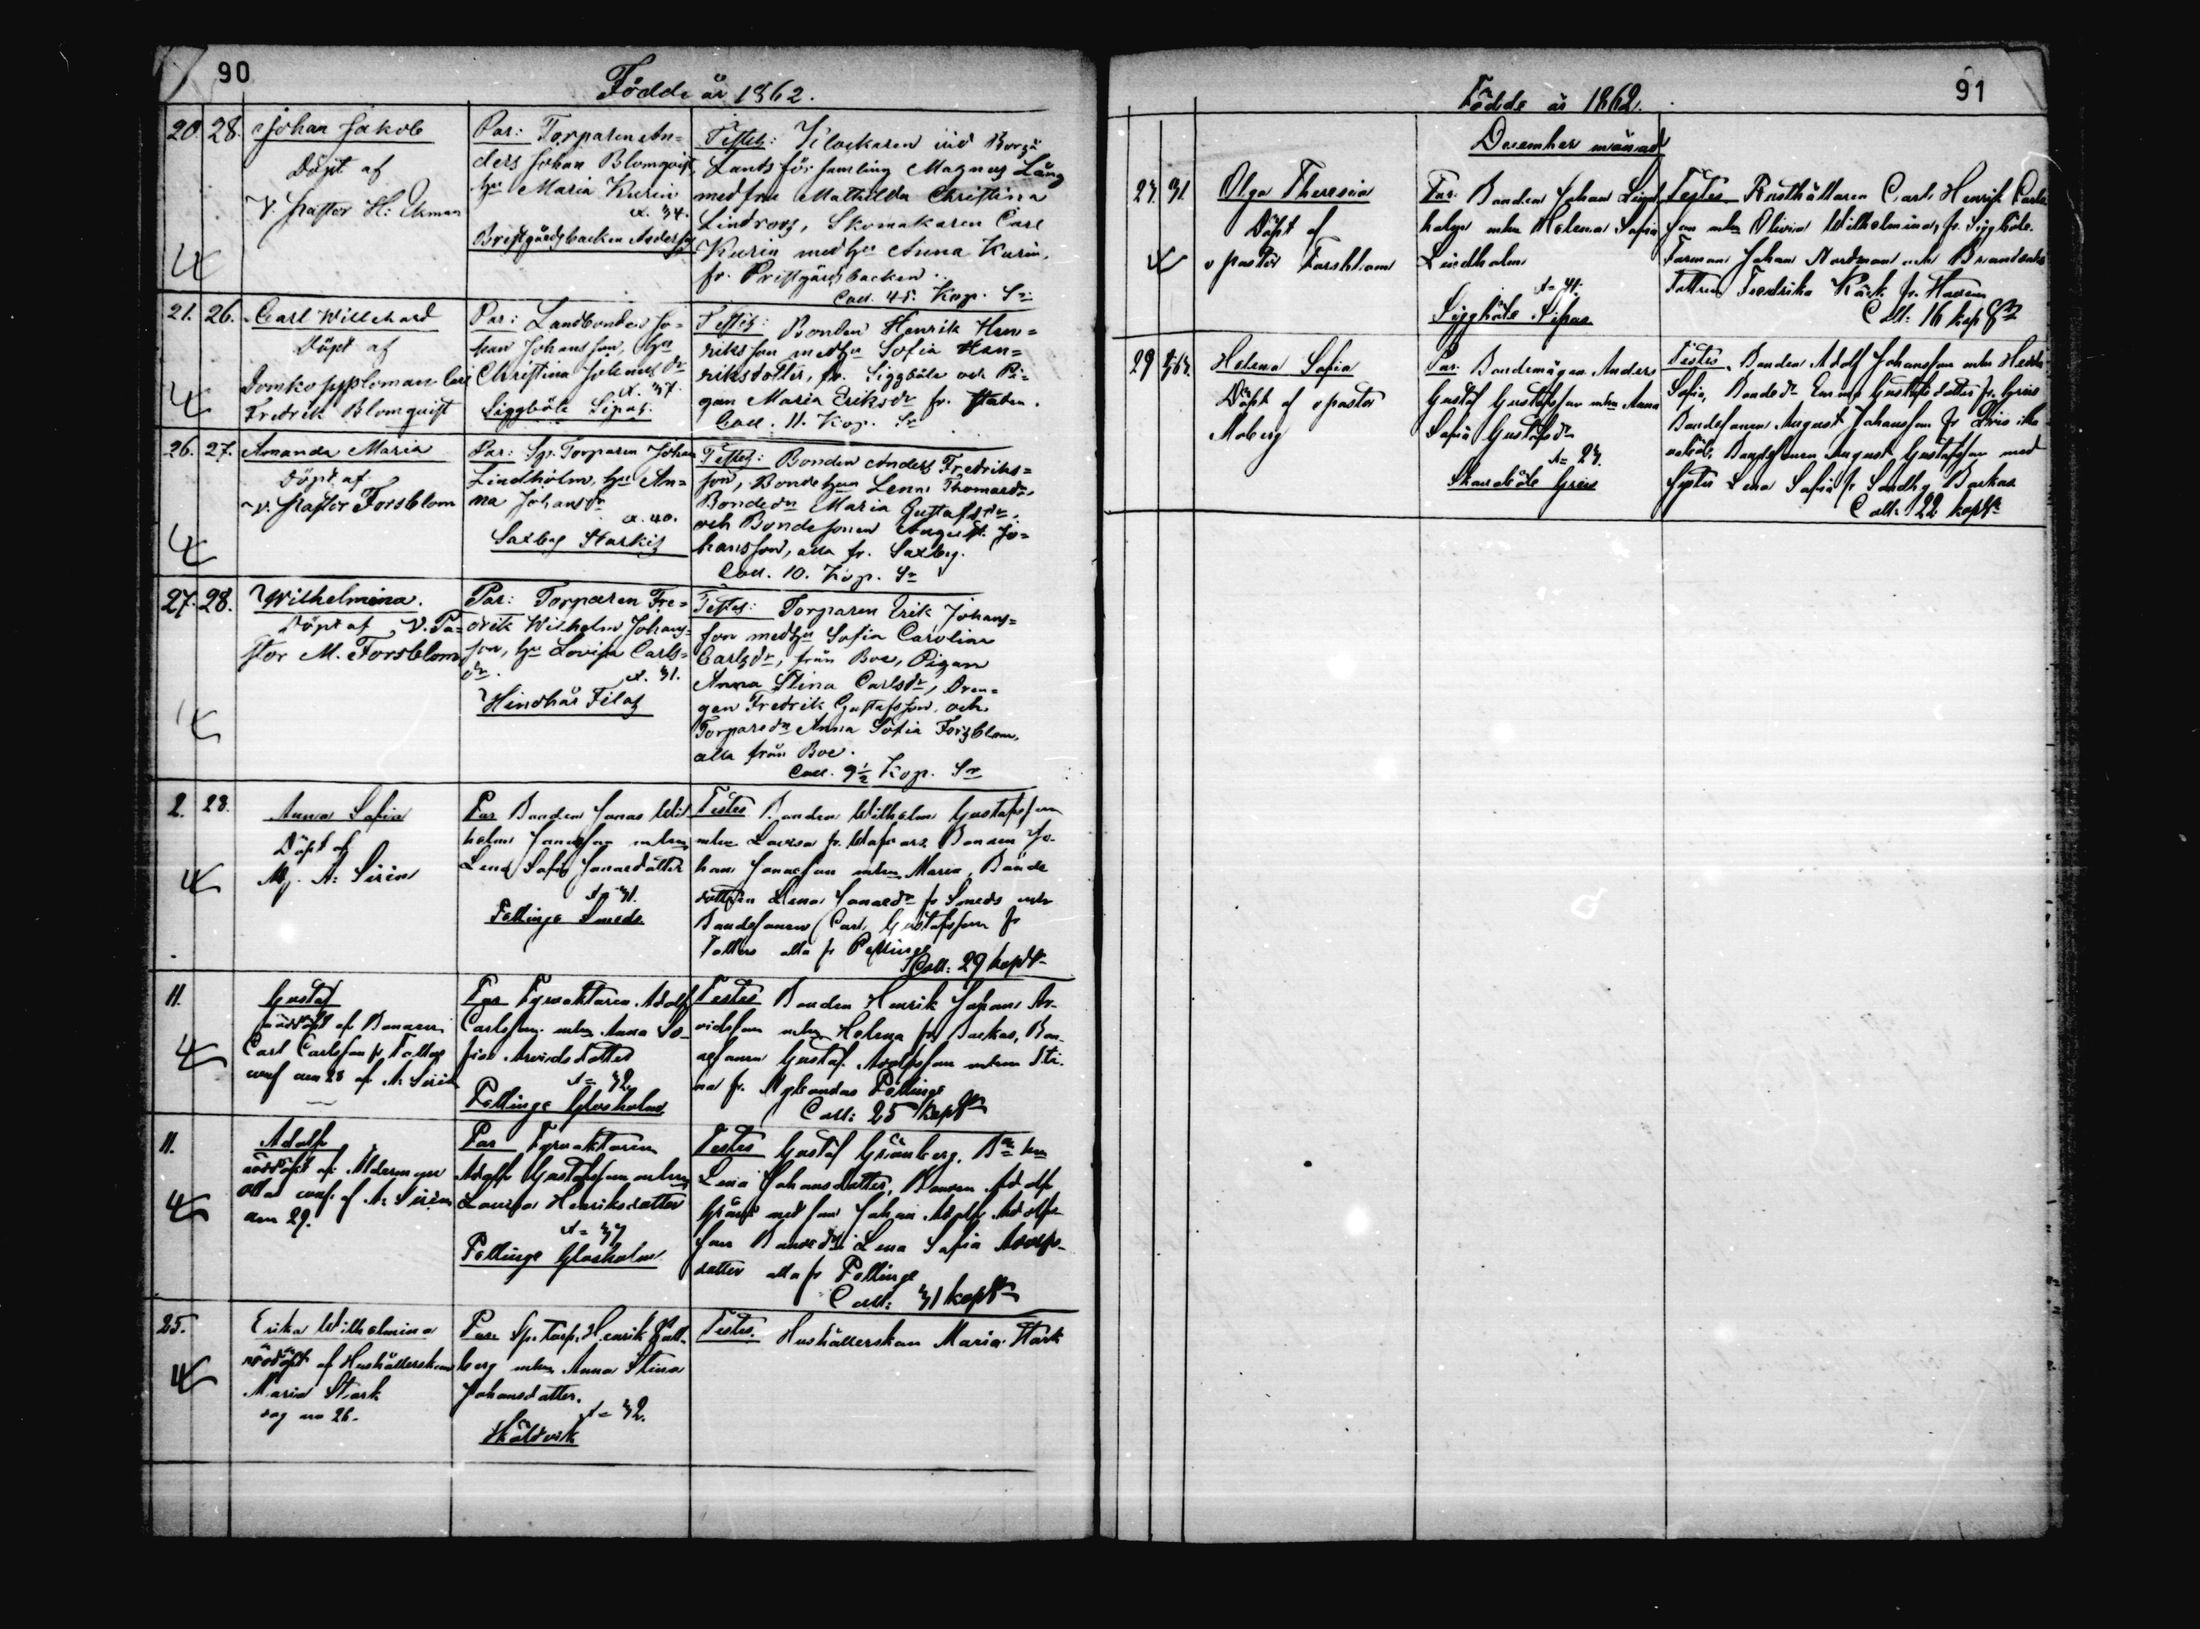 90
Födde år 1862.
20. 28. Johan Jakob
Döpt af
V. Pastor H. Ekman
Par: Torparen An=
ders Johan Blomqvist,
hu Maria Kurin
æ. 34.
Testes: Klockaren vid Borgå
Lands församling Magnus Lång
med fru Mathilda Christina
Lindroos, Skomakaren Carl
Kurin med hu Anna Kurin,
fr. Prestgårdsbacken.
Coll. 45. Kop. Sr
21. 26. Carl Willehard
Döpt af
Fredrik Blomqvist
Par: Landbonden Jo=
han Johansson, hu
Christina
æ. 37.
Siggböle Sipas.
Testes: Bonden Henrik Hen=
riksson med hu Sofia Hen=
riksdotter, fr. Siggböle och Pi=
gan Maria Eriksdr fr. staden.
Coll. 11. Kop. Sr
26. 27. Amanda Maria
Döpt af
V. Pastor Forsblom
Par: Sp. Torparen Johan
Lindholm, hu An=
na Johansdr
æ. 40.
Saxby Starkis
Testes: Bonden Anders Fredriks=
son, Bondehun Lena Thomasdr,
Bondedn Maria Gustafsdr,
och Bondesonen August Jo=
hansson, alla fr. Saxby.
Coll. 10. Kop. Sr
27. 28. Wilhelmina.
Döpt af V. Pa=
stor M. Forsblom
Par: Torparen Fre=
drik Wilhelm Johans=
son, hu Lovisa Carls=
dr.
æ. 31.
Hindhår Filas
Testes: Torparen Erik Johans=
son med hu Sofia Carolina
Carlsdr, från Boe, Pigan
Anna Stina Carlsdr, Dren=
gen Fredrik Gustafsson, och
Torparedn Anna Sofia Forsblom,
alla från Boe.
Coll. 9½ Kop. Sr
2. 28. Anna Sofia
Döpt af
A: Sirén
Par Bonden Jonas Wil
helm Jonasson mhu
Lena Sofia Jonasdotter
A= 31.
Pellinge Smeds
Testes Bonden Wilhelm Gustafsson
mhu Lovisa fr. Bonden Jo-
han Jonasson mhu Maria, Bonde
dottren Lena Jonasdr fr Smeds och
Bondesonen Carl Gustafsson fr
alla fr Pellinge
Coll: 29 kop Sr
11. Gustaf
nöddöpt af Bonden
Carl Carlsson fr
conf den 28 af A: Sirén
Par Fyrvaktaren Adolf
Carlsson mhu Anna So-
fia Arvidsdotter
A= 32
Pellinge Glosholm
Testes Bonden Henrik Johan Ar-
vidsson mhu Helena fr Backas, Bon-
desonen Gustaf Adolfsson mhu Sti-
na fr. Nylandas Pellinge
Coll: 25 kop Sr
11. Adolf
nöddöpt af
conf. af A: Sirén
den 29.
Par Fyrvaktaren
Adolf Gustafsson mhu
Lovisa Henriksdotter
A= 37
Pellinge Glosholm
Testes Gustaf Grönberg, Bde hu
Lena Johansdotter, Bonden Adolf
med son Johan Adolf Adolfs-
son Bondedn Lena Sofia Adolfs-
dotter alla fr Pellinge
Coll: 31 kop Sr
25. Erika Wilhelmina
nöddöpt af Hushållerskan
Maria Stark
dog den 26.
Par: Sp. Torp. Henrik
berg mhu Anna Stina
Johansdotter.
A= 32.
Sköldvik
Testes. Hushållerskan Maria Stark
91
Födde år 1862.
December månad
31 Olga Theresia
Döpt af
v pastor Forsblom
Par: Bonden Johan Lind
holm mhu Helena Sofia
Lindholm
A= 41.
Siggböle Sipas
Testes Rusthållaren Carl Henrik Carls
son mhu Olivia Wilhelmina, fr. Siggböle.
Farman Johan Nordman och Brandvakts
Dottren Fredrika Käck fr. Hamn
Coll: 16 kop Sr
29 Helena Sofia
Döpt af v pastor
Moberg
Par: Bondemågen Anders
Gustaf Gustafsson mhu Anna
Sofia Gustafsdr
A= 23.
Skavaböle Griis
Testes. Bonden Adolf Johansson mhu
Sofia, Bondedr Emma Gustafsdotter fr. Griis
Bondesonen August Johansson fr
Bondesonen August Gustafsson med
Syster Lena Sofia fr Sondby Backas
Coll: 22 kop Sr